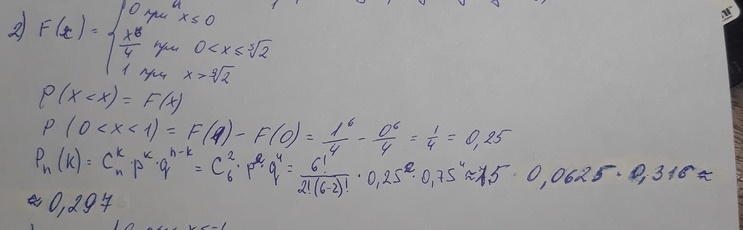 2) F(x) = { 0 при x ≤ 0
x⁶/4 при 0 < x ≤ ∛2
1 при x > ∛2
P(X < x) = F(x)
P(0 < x < 1) = F(1) − F(0) = 1⁶/4 − 0⁶/4 = 1/4 = 0,25
Pₙ(k) = Cₙᵏ · pᵏ · qⁿ⁻ᵏ = C₆² · p² · q⁴ = 6!/2!(6-2)! · 0,25² · 0,75⁴ ≈ 15 · 0,0625 · 0,316 ≈
≈ 0,297